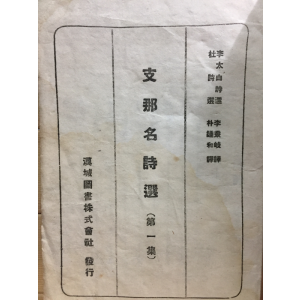 李太白詩選 李秉岐譯
杜詩選 朴鍾和譯
支那名詩選(第一集)
漢城圖書株式會社 發行